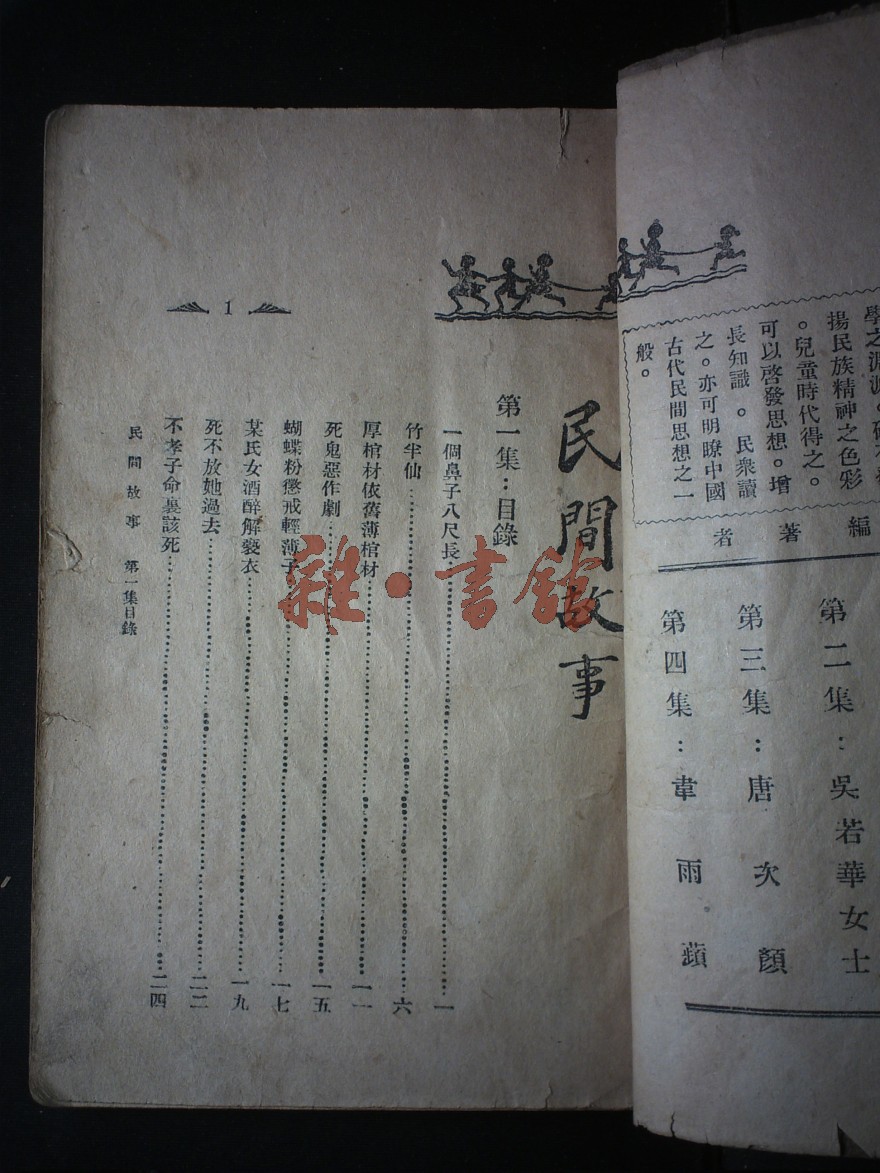 揚民族精神之色彩
。兒童時代得之。
可以啓發思想。增
長知識。民衆讀
之。亦可明瞭中國
古代民間思想之一
般。
編著者
第二集：吳若華女士
第三集：唐次顏
第四集：韋雨蘋
民間故事
第一集：目錄
一個鼻子八尺長 一
竹半仙 六
厚棺材依舊薄棺材 一一
死鬼惡作劇 一五
蝴蝶粉懲戒輕薄子 一七
某氏女酒醉解褻衣 一九
死不放她過去 二二
不孝子命裏該死 二四
民間故事 第一集目錄
1
雜·書館